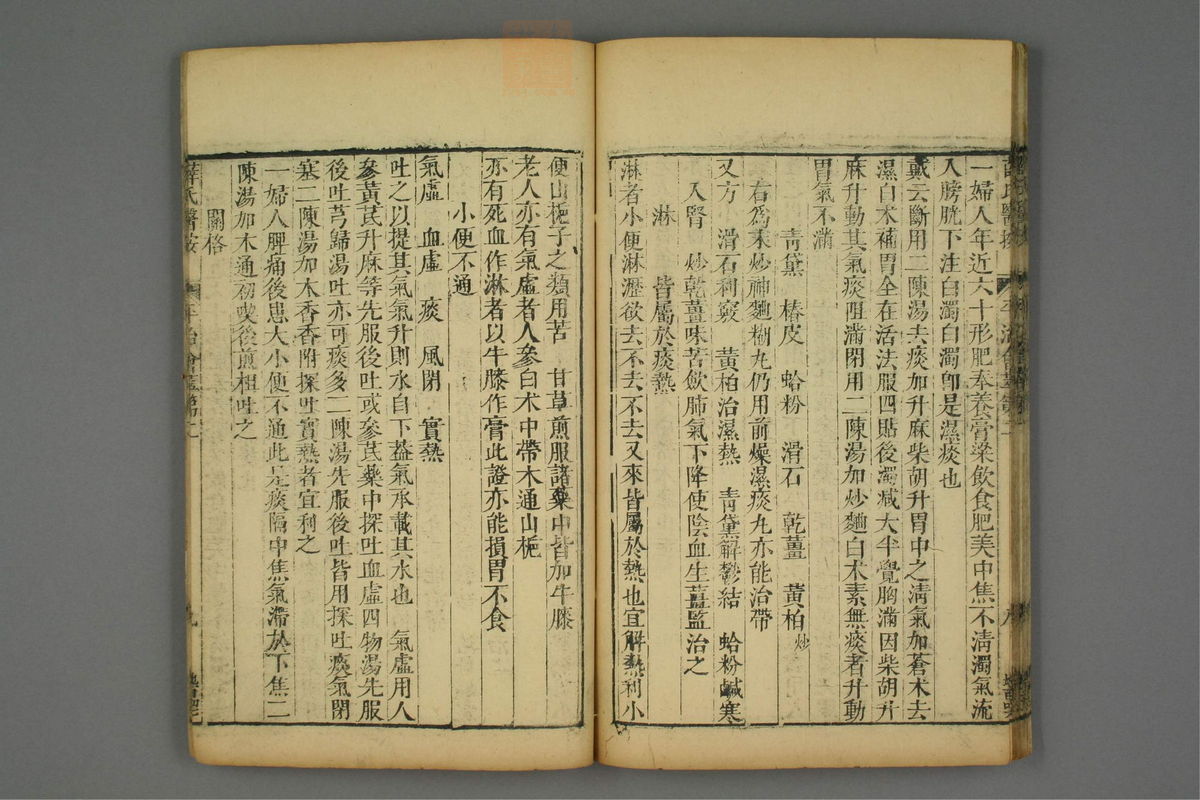 一婦人年近六十形肥奉養膏梁飲食肥美中焦不清濁氣流
入膀胱下注白濁白濁卽是濕痰也
戴云斷用二陳湯去痰加升麻柴胡升胃中之淸氣加蒼术去
濕白术補胃全在活法服四貼後濁减大半覺胸滿因柴胡升
麻升動其氣痰阻滿閉用二陳湯加炒麯白术素無痰者升動
胃氣不滿
青黛 椿皮 蛤粉 滑石 乾薑 黃柏炒
右爲末炒神麯糊丸仍用前燥濕痰丸亦能治帶
又方 滑石利竅 黃柏治濕熱 靑黛解鬱結 蛤粉鹹寒
入腎 炒乾薑味苦飲肺氣下降使陰血生薑監治之
淋 皆屬於痰熱
淋者小便淋瀝欲去不去不去又來皆屬於熱也宜解熱利小
便山梔子之類用苦 甘草煎服諸藥中皆加牛膝
老人亦有氣虛者人參白术中帶木通山梔
亦有死血作淋者以牛膝作膏此證亦能損胃不食
小便不通
氣虛 血虛 痰 風閉 實熱
吐之以提其氣氣升則水自下葢氣承載其水也 氣虛用人
參黃芪升麻等先服後吐或參芪藥中探吐血虛四物湯先服
後吐芎歸湯吐亦可痰多二陳湯先服後吐皆用探吐痰氣閉
塞二陳湯加木香香附探吐實熱者宜利之
一婦人脾痛後患大小便不通此是痰隔中焦氣滯於下焦二
陳湯加木通初喫後煎柤吐之
關格
薛氏醫按 平治會萃卷之 九